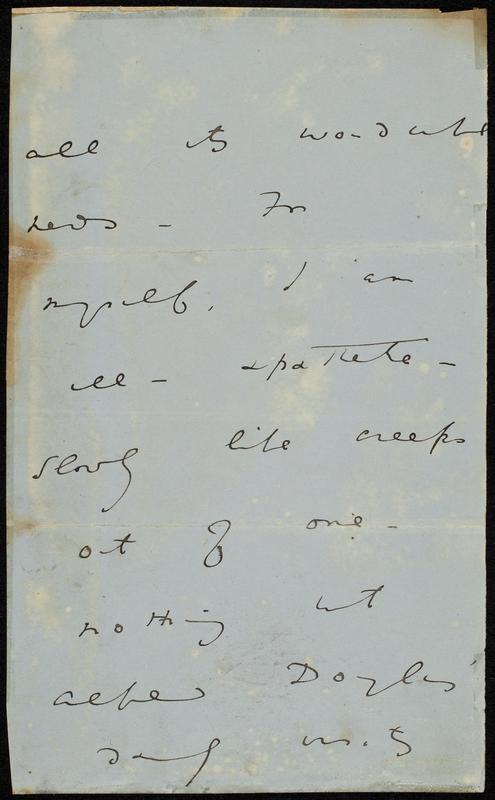 all its wonderful
news – For
myself, I am
ill – apathetic –
Slowly life creeps
out of one –
nothing but
Alfred Douglas'
daily visits